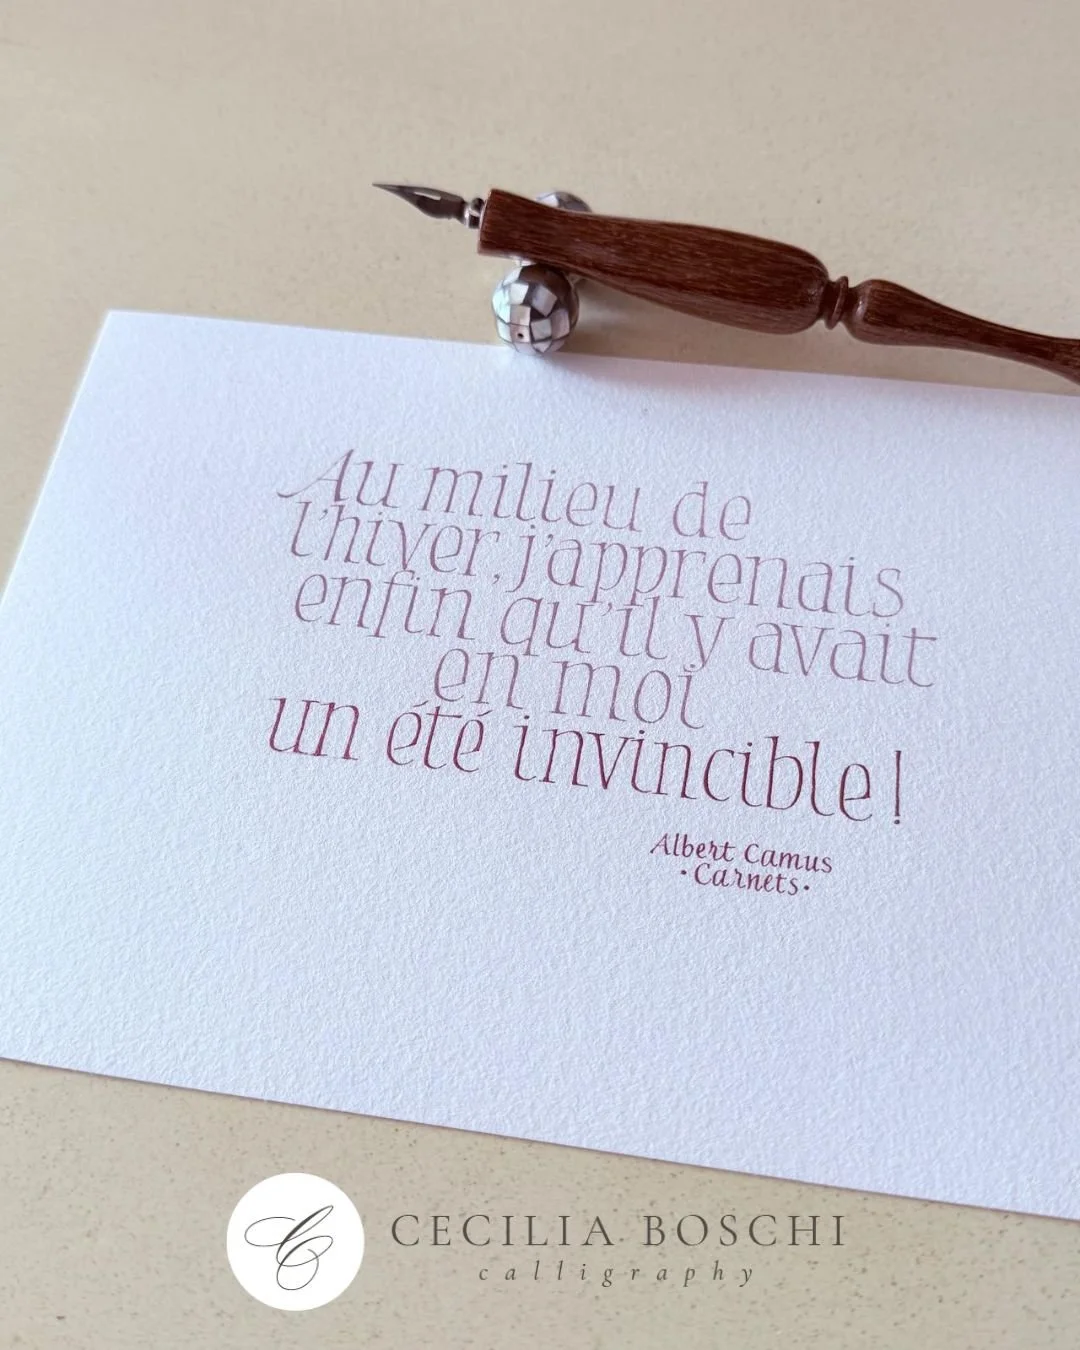 Au milieu de
l'hiver, j'apprenais
enfin qu'il y avait
en moi
un été invincible !
Albert Camus
·Carnets·
CECILIA BOSCHI
calligraphy